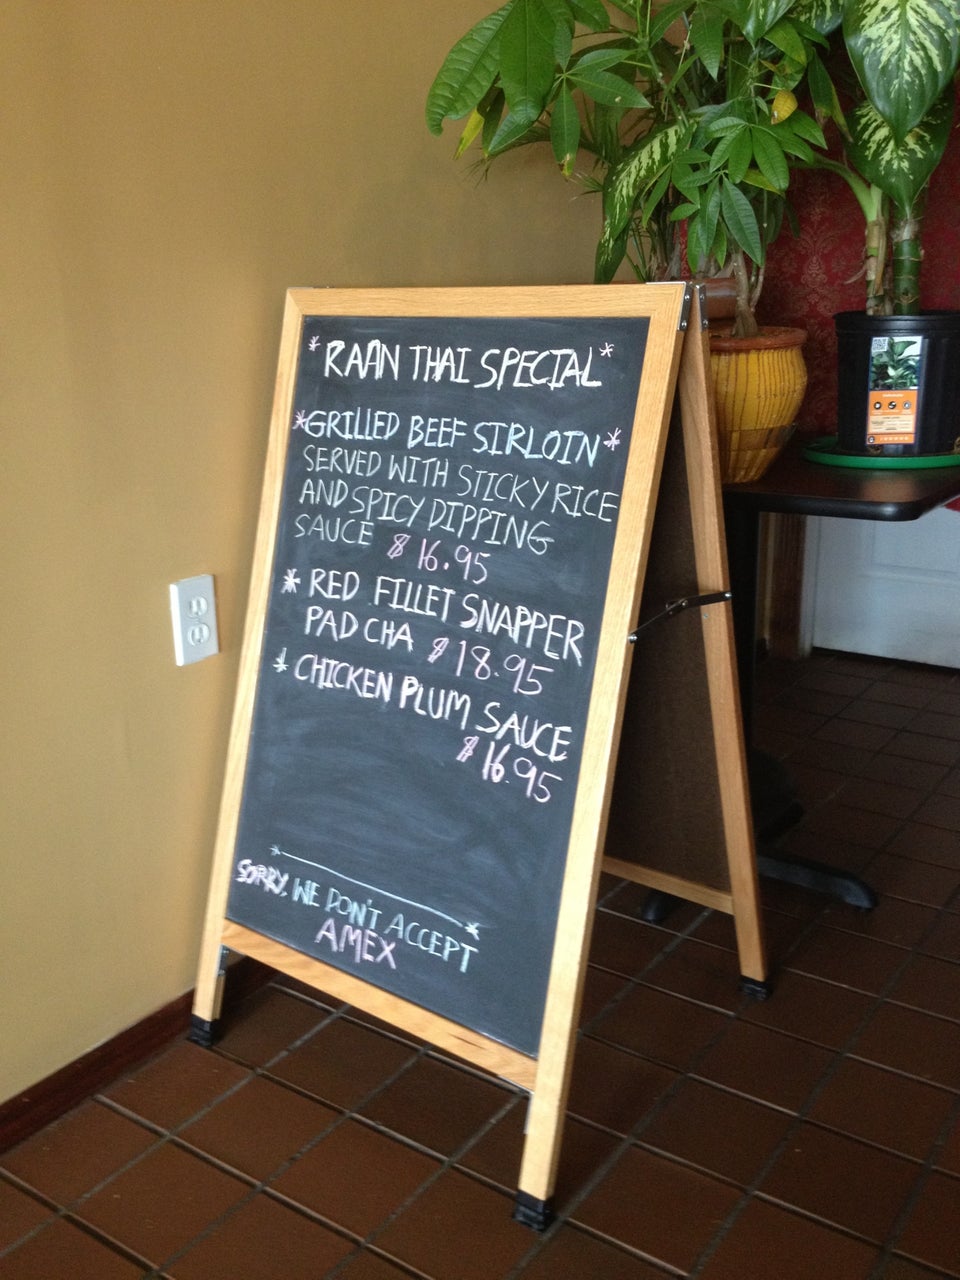 * RAAN THAI SPECIAL *
* GRILLED BEEF SIRLOIN *
SERVED WITH STICKY RICE
AND SPICY DIPPING
SAUCE $16.95
* RED FILLET SNAPPER
PAD CHA $18.95
* CHICKEN PLUM SAUCE
$16.95
SORRY, WE DON'T ACCEPT
AMEX